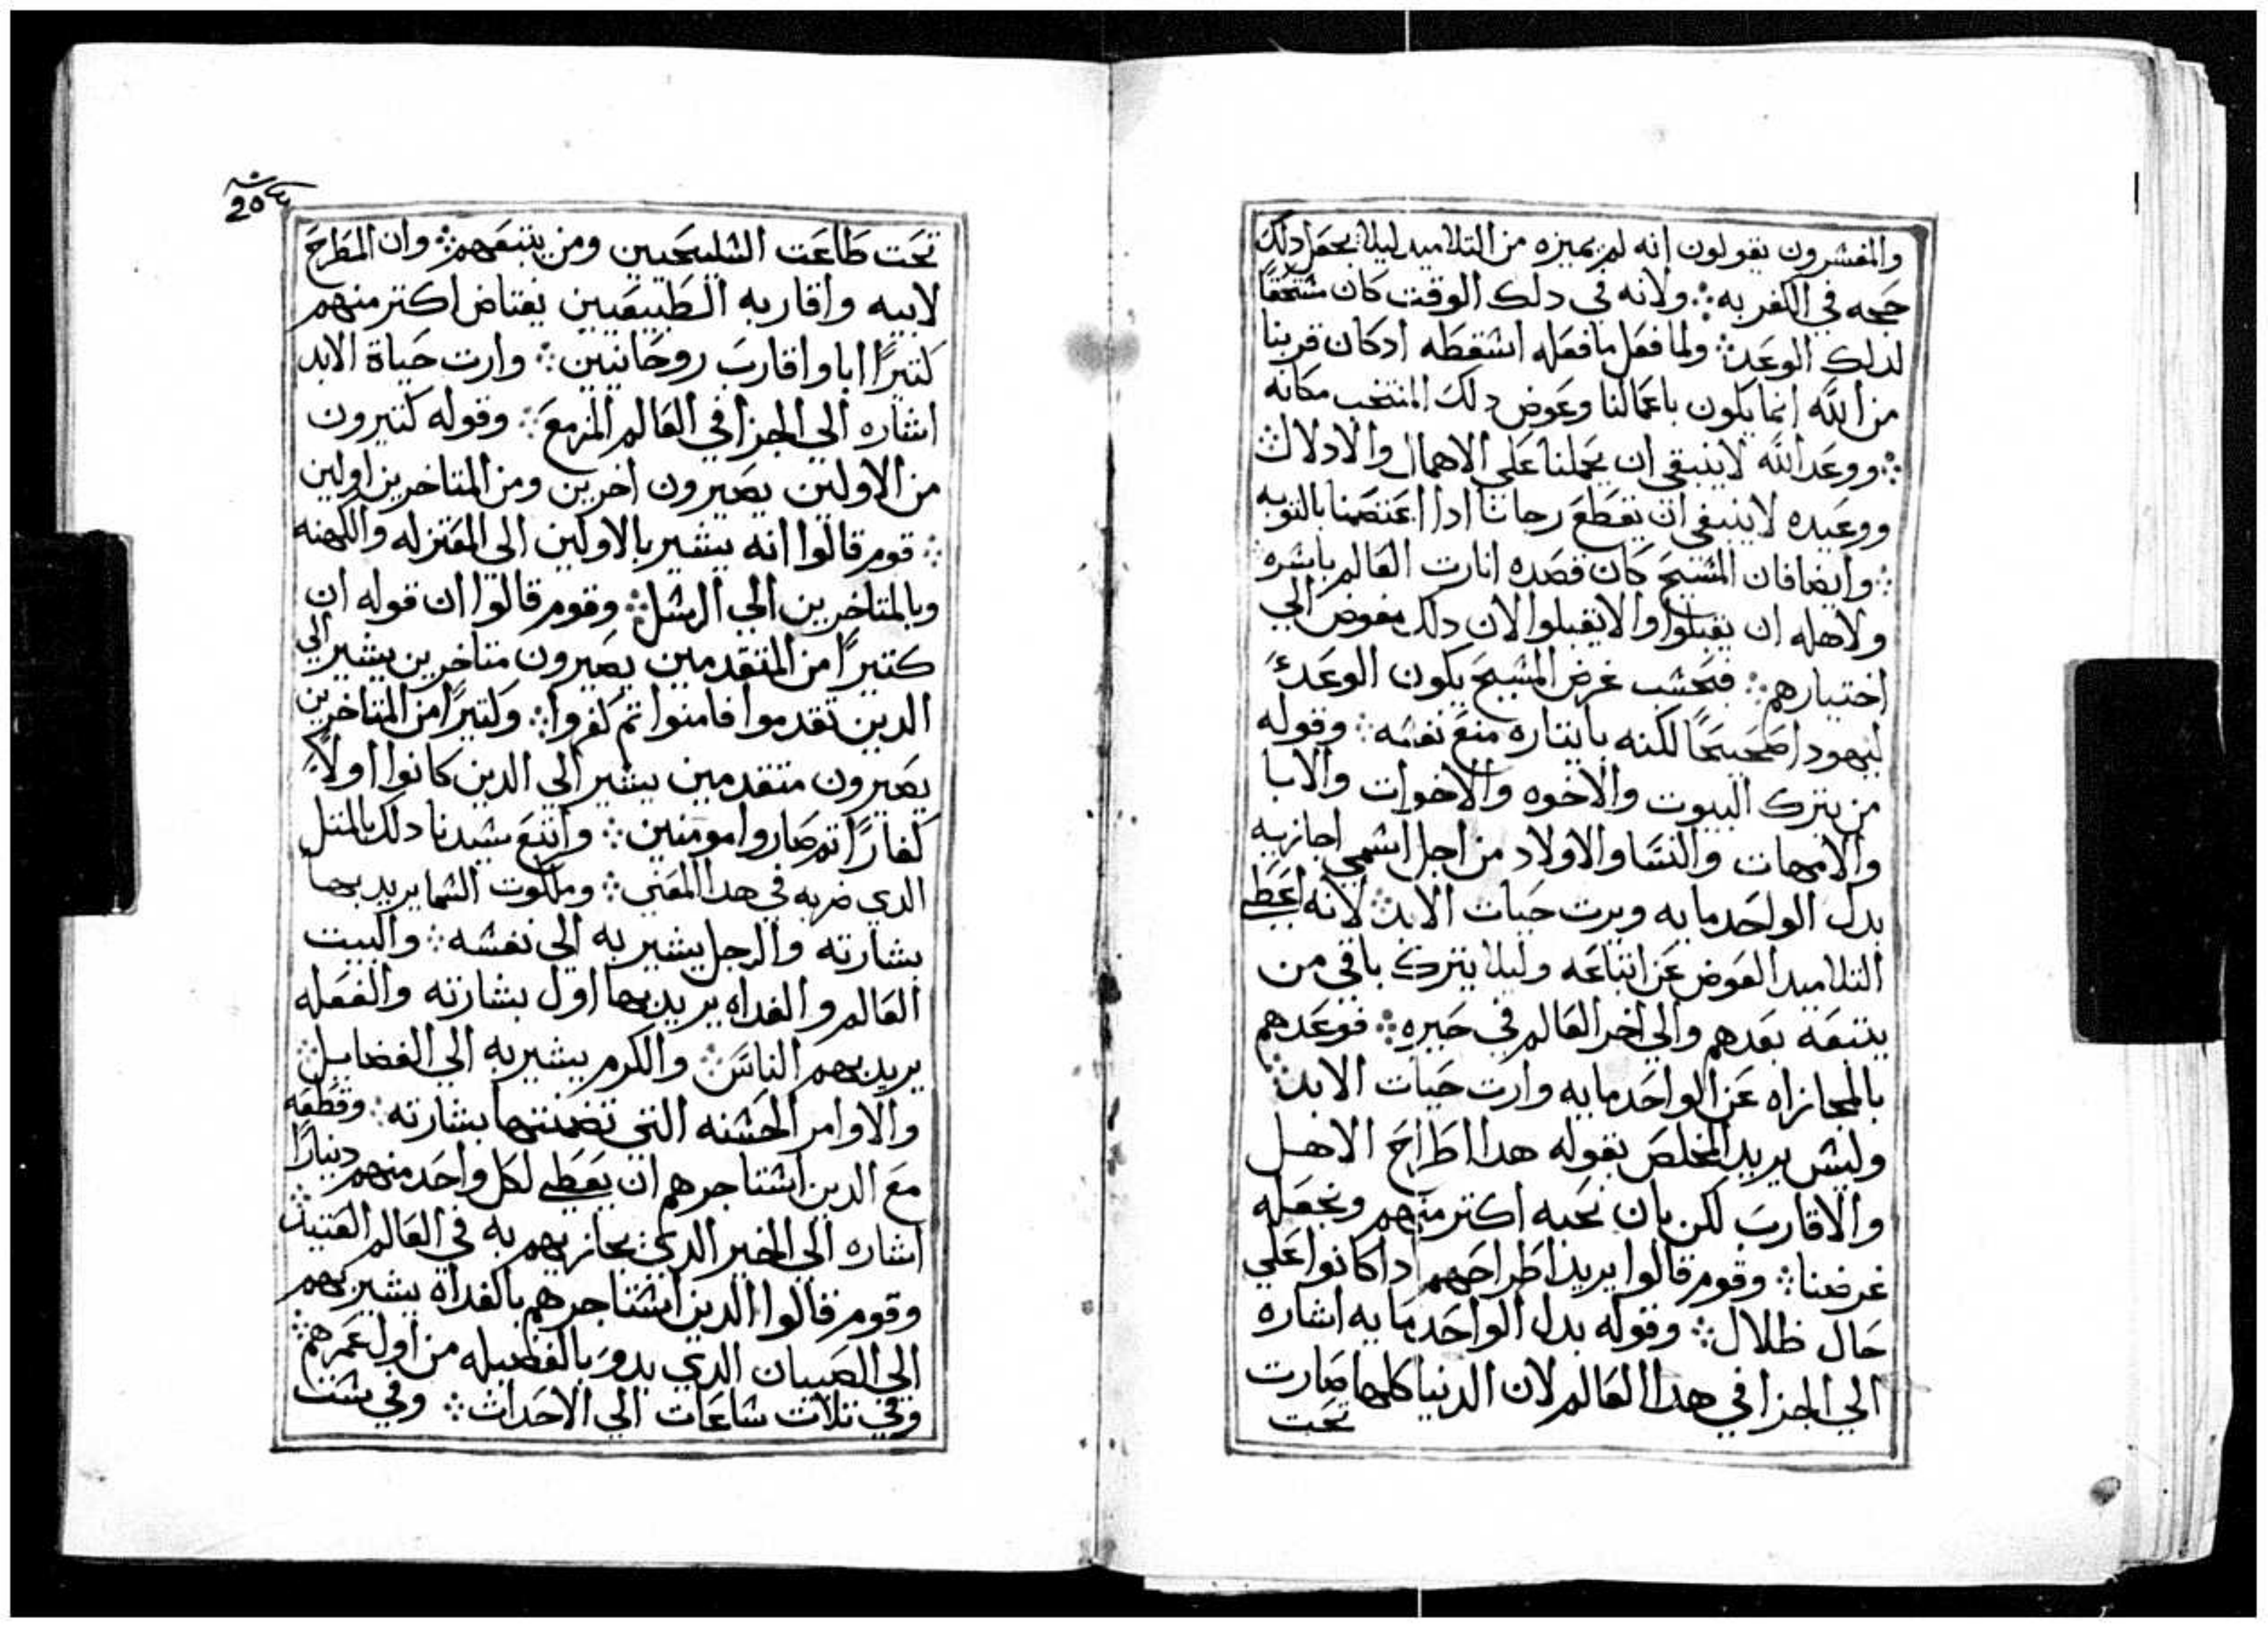 والمفسرون يقولون انه لم يميزه من التلاميد ليلا يجعل دلك
حجه في الكفر به ولانه في دلك الوقت كان مشتحقًا
لدلك الوعد ولما فعل ما فعله اشقطه ادكان قربنا
من الله انما يكون باعمالنا وعوض دلك المنتخب مكانه
ووعد الله لا ينبغي ان يحملنا على الاهمال والادلال
ووعيده لا ينبغي ان يقطع رجانا ادا اعتصمنا بالتوبه
وايضا فان المشيح كان قصده انارت العالم باشره
ولاهله ان يقبلوا والا يقبلوا لان دلك مفوض الي
اختيارهم فبحشب غرض المشيح يكون الوعد
ليهودا صحيحًا لكنه باينتاره منع نفشه وقوله
من يترك البيوت والاخوه والاخوات والابا
والامهات والنشا والاولاد من اجل اشمي اجازيه
بدل الواحد مايه ويرت حيات الابد لانه اعطي
التلاميد العوض عن اتباعه وليلا يترك باقي من
يتبعه بعدهم والي اخر العالم في حيره فوعدهم
بالمجازاه عن الواحد مايه وارت حيات الابد
وليش يريد المخلص بقوله هدا اطراح الاهل
والاقارب لكن بان نحبه اكتر منهم ونجعله
غرضنا وقوم قالوا يريد اطراحهم ادا كانوا علي
حال ظلال وقوله بدل الواحد مايه اشاره
الي الجزا في هدا العالم لان الدنيا كلها صارت
تحت
تحت طاعت الشليحيين ومن يتبعهم وان المطرح
لابيه واقاربه الطبيعيين يعتاض اكتر منهم
كتيرًا ابا واقارب روحانيين وارت حياة الابد
اشاره الي الجزا في العالم المزمع وقوله كتيرون
من الاولين يصيرون اخرين ومن المتاخرين اولين
قوم قالوا انه يشير بالاولين الي المعتزله والكهنه
وبالمتاخرين الي الرشل وقوم قالوا ان قوله ان
كتيرًا من المتقدمين يصيرون متاخرين يشير الي
الدين تقدموا فامنوا تم كفروا وكتيرًا من المتاخرين
يصيرون متقدمين يشير الي الدين كانوا اولًا
كفارًا تم صاروا مومنين واتبع شيدنا دلك بالمتل
الدي ضربه في هدا المعني وملكوت الشما يريد بها
بشارته والرجل يشير به الي نفشه والبيت
العالم والغداه يريد بها اول بشارته والفعله
يريد بهم الناش والكرم يشير به الي الفضايل
والاوامر الحشنه التي تضمنتها بشارته وقطعه
مع الدين اشتاجرهم ان يعطي لكل واحد منهم دينارًا
اشاره الي الخير الدي يجازيهم به في العالم العتيد
وقوم قالوا الدين اشتاجرهم بالغداة يشير بهم
الي الصبيان الدي يدور بالفضيله من اول عمرهم
وفي تلات شاعات الي الاحدات وفي شت